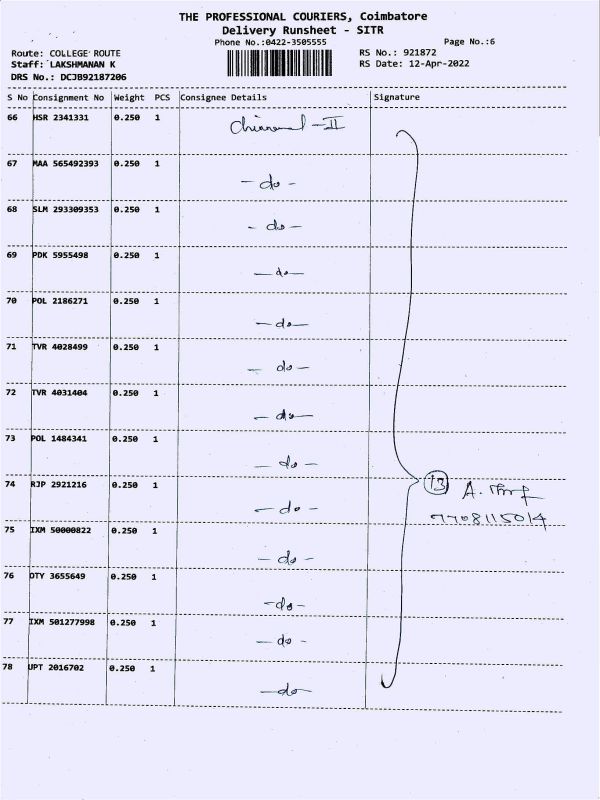 THE PROFESSIONAL COURIERS, Coimbatore
Delivery Runsheet - SITR
Phone No.:0422-3505555
Page No.:6
Route: COLLEGE ROUTE
RS No.: 921872
Staff: LAKSHMANAN K
RS Date: 12-Apr-2022
DRS No.: DCJB92187206
S No Consignment No Weight PCS Consignee Details Signature
66 HSR 2341331 0.250 1
- II
67 MAA 565492393 0.250 1
- do -
68 SLM 293309353 0.250 1
- do -
69 PDK 5955498 0.250 1
- do -
70 POL 2186271 0.250 1
- do -
71 TVR 4028499 0.250 1
- do -
72 TVR 4031404 0.250 1
- do -
73 POL 1484341 0.250 1
- do -
74 RJP 2921216 0.250 1
13 A.
- do -
7708115014
75 IXM 50000822 0.250 1
- do -
76 OTY 3655649 0.250 1
- do -
77 IXM 501277998 0.250 1
- do -
78 UPT 2016702 0.250 1
- do -